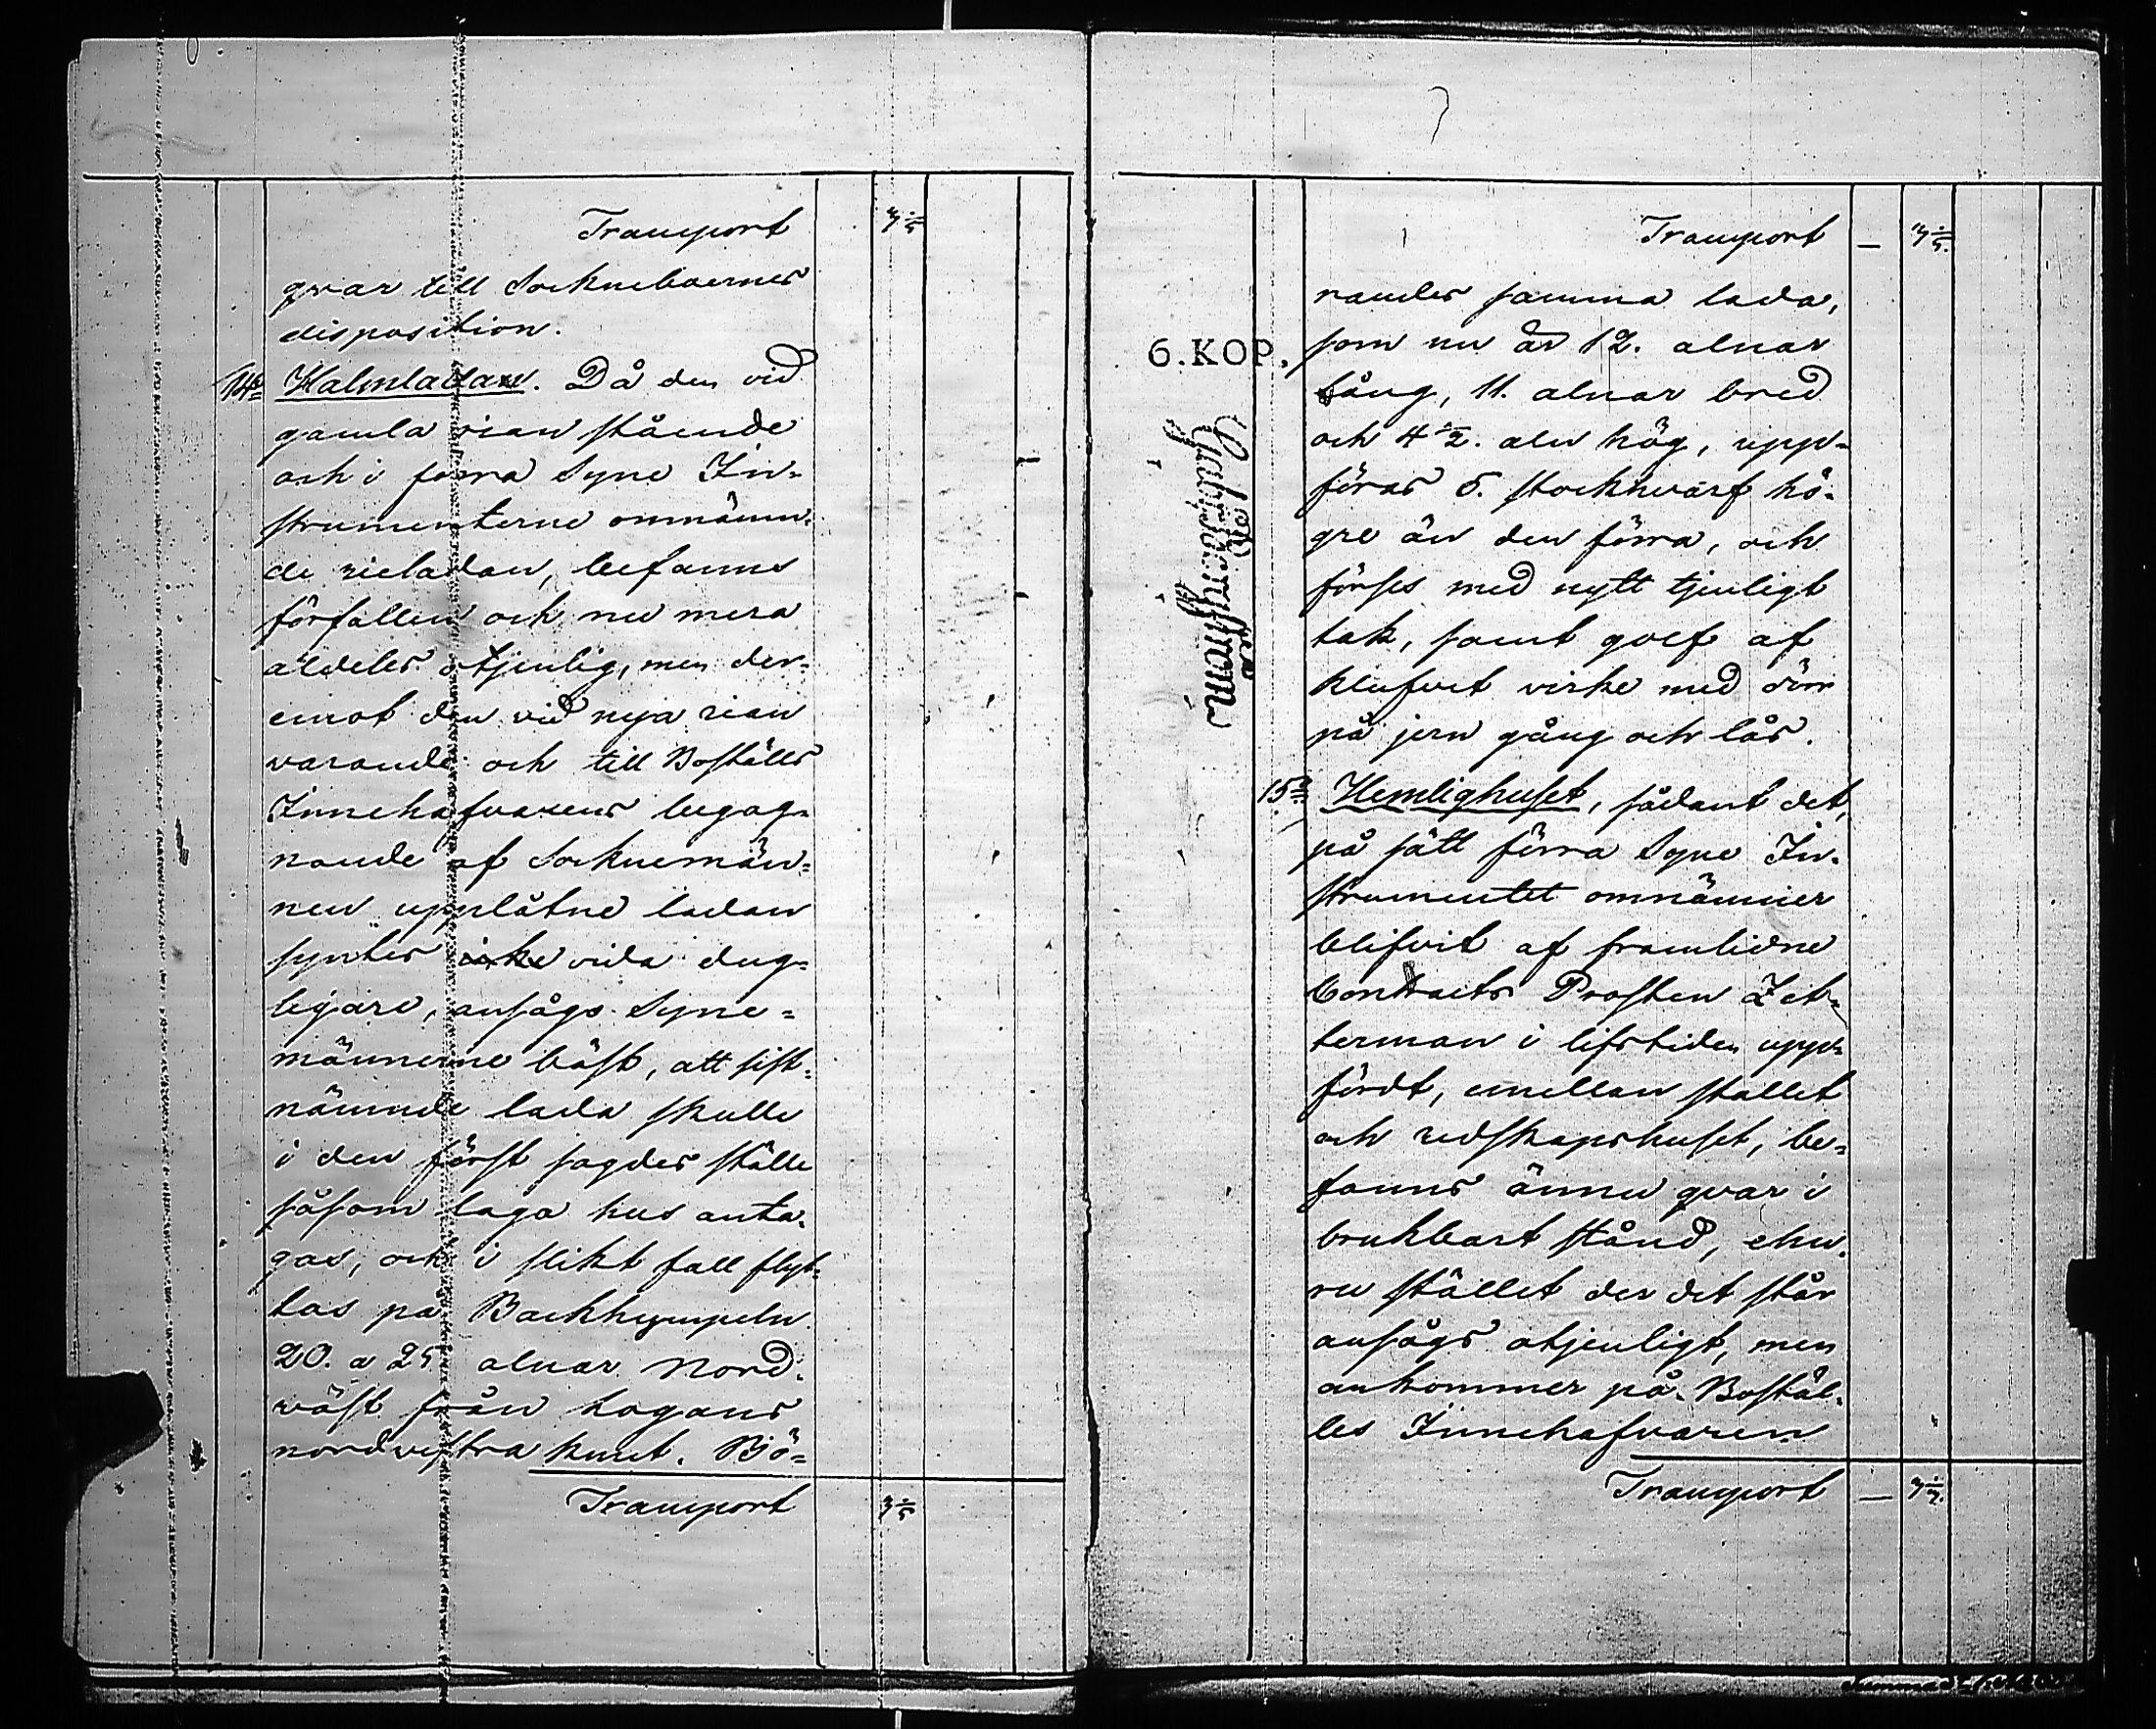 Transport
qvar till Sockneboernes
disposition.
14. Halmladan. Då den vid
gamla rian stående
och i forra Syne In-
strumenterne omnämn-
de rieladan, befanns
förfallen och nu mera
aldeles otjenlig, men der-
emot den vid nya rian
varande och till Boställs
Innehafvarens begag-
nande af Socknemän-
nen upplåtne ladan
syntes icke vida dug-
ligare, ansågs Syne-
männerne bäst, att sist-
nämnde lada skulle
i den först sagdes ställe
såsom laga hus anta-
gas, och i slikt fall flyt-
tas på Backkympeln
20. a 25 alnar Nord-
väst från Logans
nordvestra knut. Bö-
Transport
Transport —
randes samma lada,
som nu är 12. alnar
lång, 11. alnar bred
och 4 1/2. aln hög, upp-
föras 5. stockhvarf hö-
gre än den förra, och
förses med nytt tjenligt
tak, samt golf af
klufvit virke med dörr
på jern gång och lås.
6.KOP.
15. Hemlighuset, sådant det,
på sätt förra Syne In-
strumentet omnämner
blifvit af framlidne
Contracts Prosten Zet-
terman i lifstiden upp-
fördt, emellan stallet
och redskapshuset, be-
fanns ännu qvar i
brukbart stånd, ehu-
ru stället der det står
ansågs otjenligt, men
ankommer på Bostäl-
les Innehafvaren
Transport —